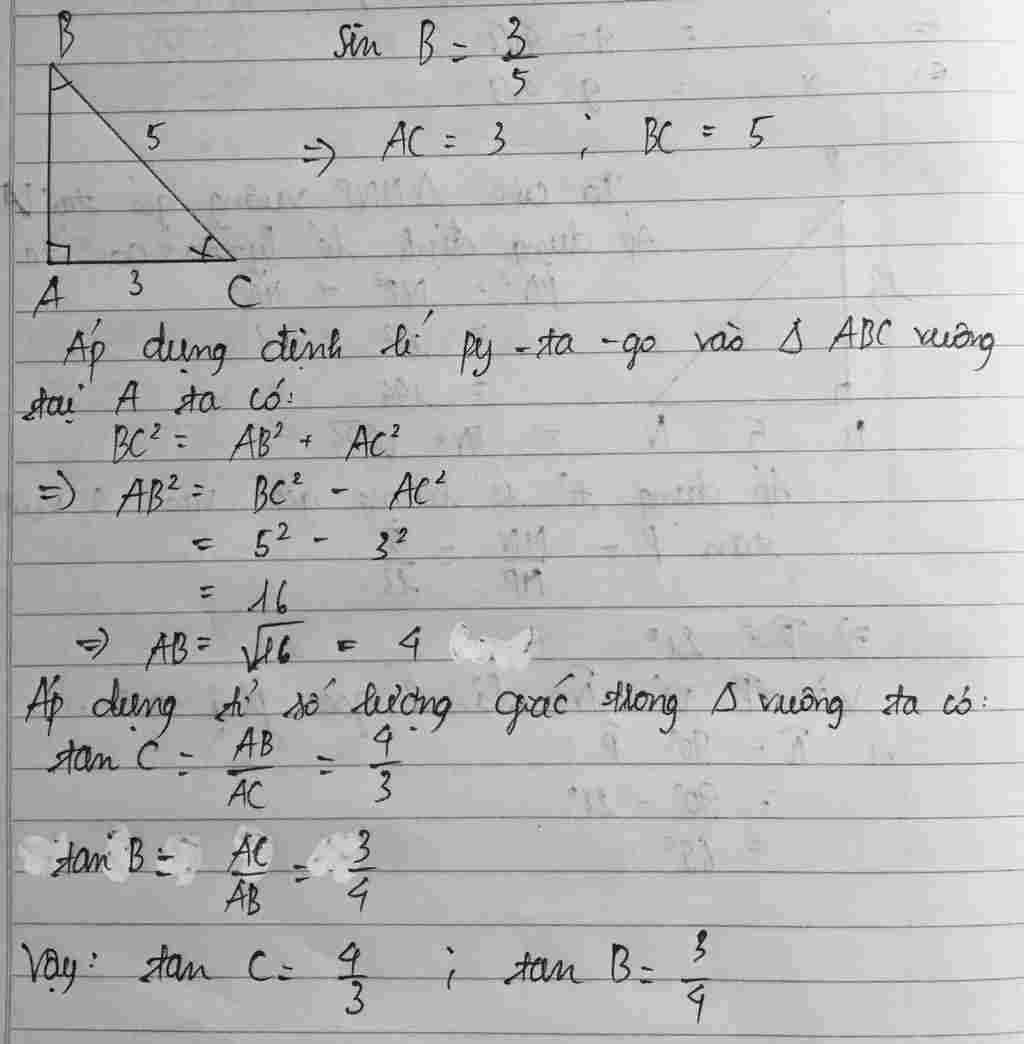 B
sin B = 3/5
5
=> AC = 3 ; BC = 5
A 3 C
Áp dụng định lí py-ta-go vào Δ ABC vuông
tại A ta có:
BC² = AB² + AC²
=> AB² = BC² - AC²
= 5² - 3²
= 16
=> AB = √16 = 4
Áp dụng tỉ số lượng giác trong Δ vuông ta có:
tan C = AB/AC = 4/3
tan B = AC/AB = 3/4
Vậy: tan C = 4/3 ; tan B = 3/4